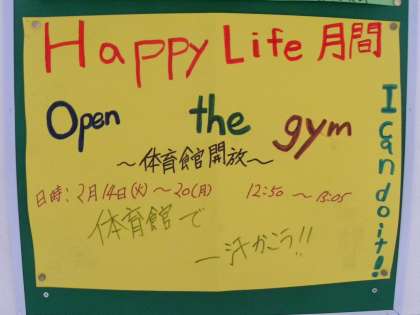 Happy Life 月間
Open the gym
I can do it!!
〜体育館開放〜
日時：2月14日(火)〜20(月) 12:50〜13:05
体育館で
一汗かこう!!